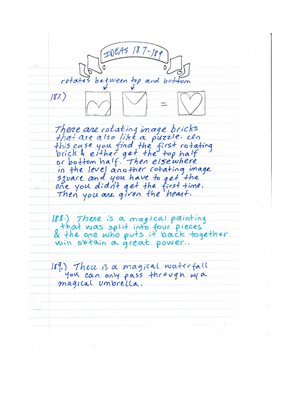 IDEAS 187-189
rotates between top and bottom
187.)
=
There are rotating image bricks
that are also like a puzzle. In
this case you find the first rotating
brick & either get the top half
or bottom half. Then elsewhere
in the level another rotating image
square and you have to get the
one you didn't get the first time.
Then you are given the heart.
188.) There is a magical painting
that was split into four pieces
& the one who puts it back together
will obtain a great power..
189.) There is a magical waterfall
you can only pass through w/a
magical umbrella.